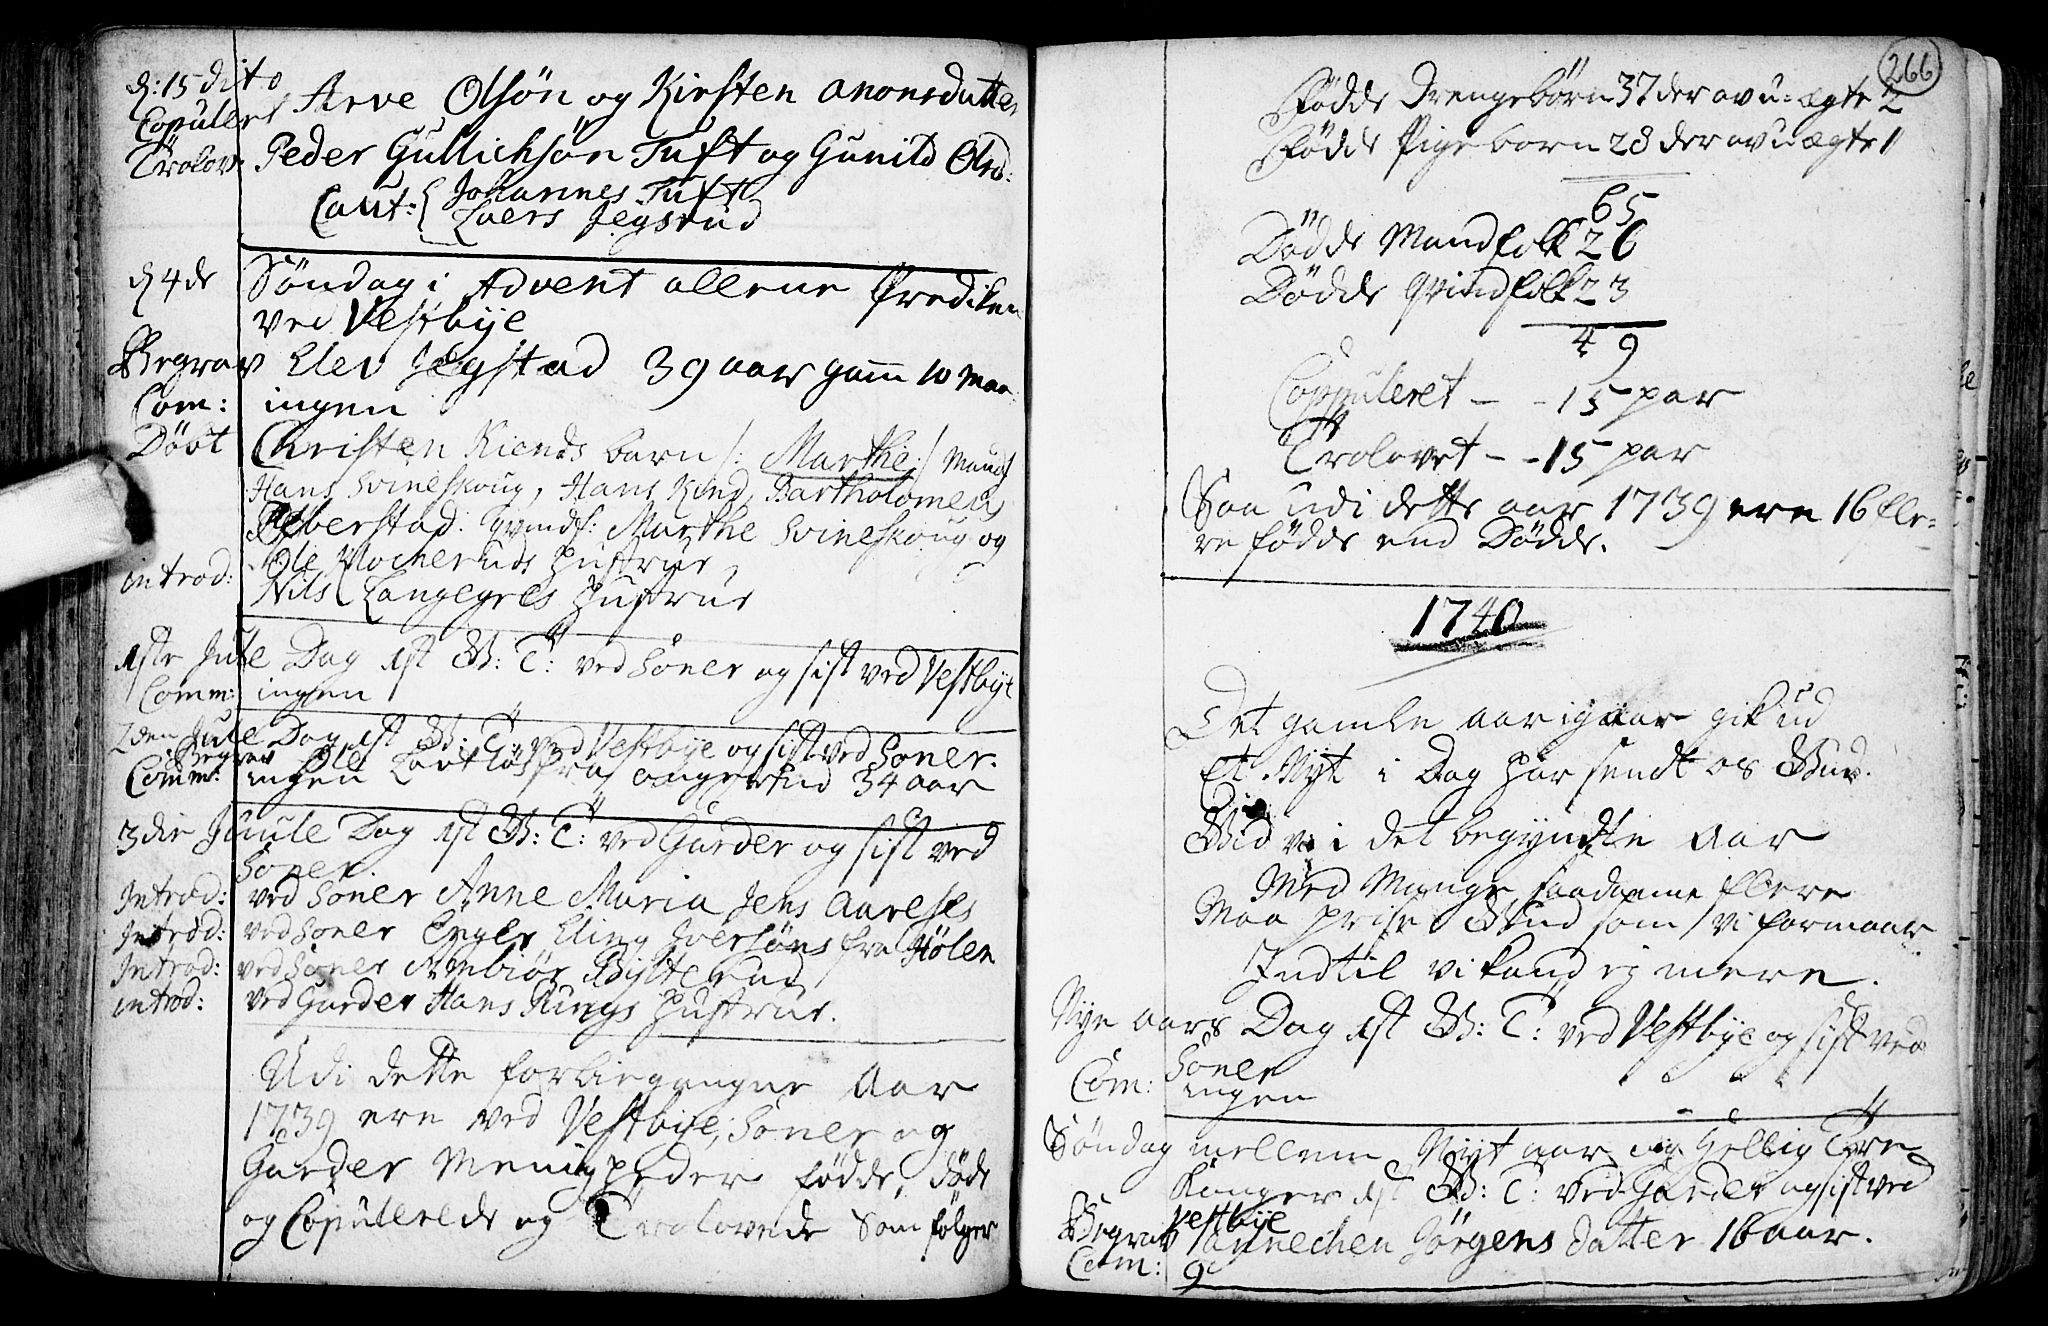 d: 15 dito
Copulert Arve Olsön og Kirsten anonsdatter
Trolov: Peder Gullichsön Tuft og Gunild Olsd:
Caut: { Johannes Tuft
Laers Jegsrud
d 4de Söndag i Advent allene Prediken
ved Vestbÿe
Begrav Elev Jegstad 39 aar gam̄ 10 maa
Com: ingen
Döbt Christen Kiends barn /: Marthe :/ Mands
Hans Svineskoug, Hans Kind, Bartholomeus
Qvindf: Marthe Svineskoug og
Ole Mocheruds Hustrue,
introd: Nils Langegres Hustrue
1ste Jule Dag 1st G: T: ved Söner og sist ved Vestbÿe
Comm: ingen
2den Jule Dag 1st G: T: ved Vestbÿe og sist ved Soner.
Begrav Ole 34 aar
Comm: ingen
3die Juule Dag 1st G: T: ved Garder og sist ved
Soner
Introd: ved Soner Anne Maria Jens Aareses
Introd: ved Soner Engler Eling Jversöns fra Hölen
Introd: ved Soner Anbiör Bÿlterud
introd: ved Garder Hans Rings Hustrue.
Udi dette forbiegangne Aar
1739 ere ved Vestbÿe, Soner og
Garder Menigheder födde, döde
og Copulerede og Trolovede som fölger
266
Födde Drengebörn 37 der av u:ægte 2
Födde Pigebörn 28 der av uægte 1
65
Dödde Mandfolk 26
Dödde Qvindfolk 23
49
Coppuleret - - 15 par
Trolovet - - 15 par
Saa udi dette aar 1739 ere 16 fle-
re födde end Dödde.
1740
Det gamle aar igaar gik ud
Et Nyt i Dag har sendt os Gud.
Gid vi i det begyndte Aar
Med Mange saadanne flere
Maa prise Gud som vi formaar
Indtil vi kand ej mere.
Nye aars Dag 1st G: T: ved Vestbÿe og sist ved
Soner
Com: ingen
Söndag mellem Nyt aar og Hellig Tre
Konger 1st G: T: ved Garder og sist ved
Vestbÿe
Begrav annechen Jörgens datter 16 aar.
Com: 9